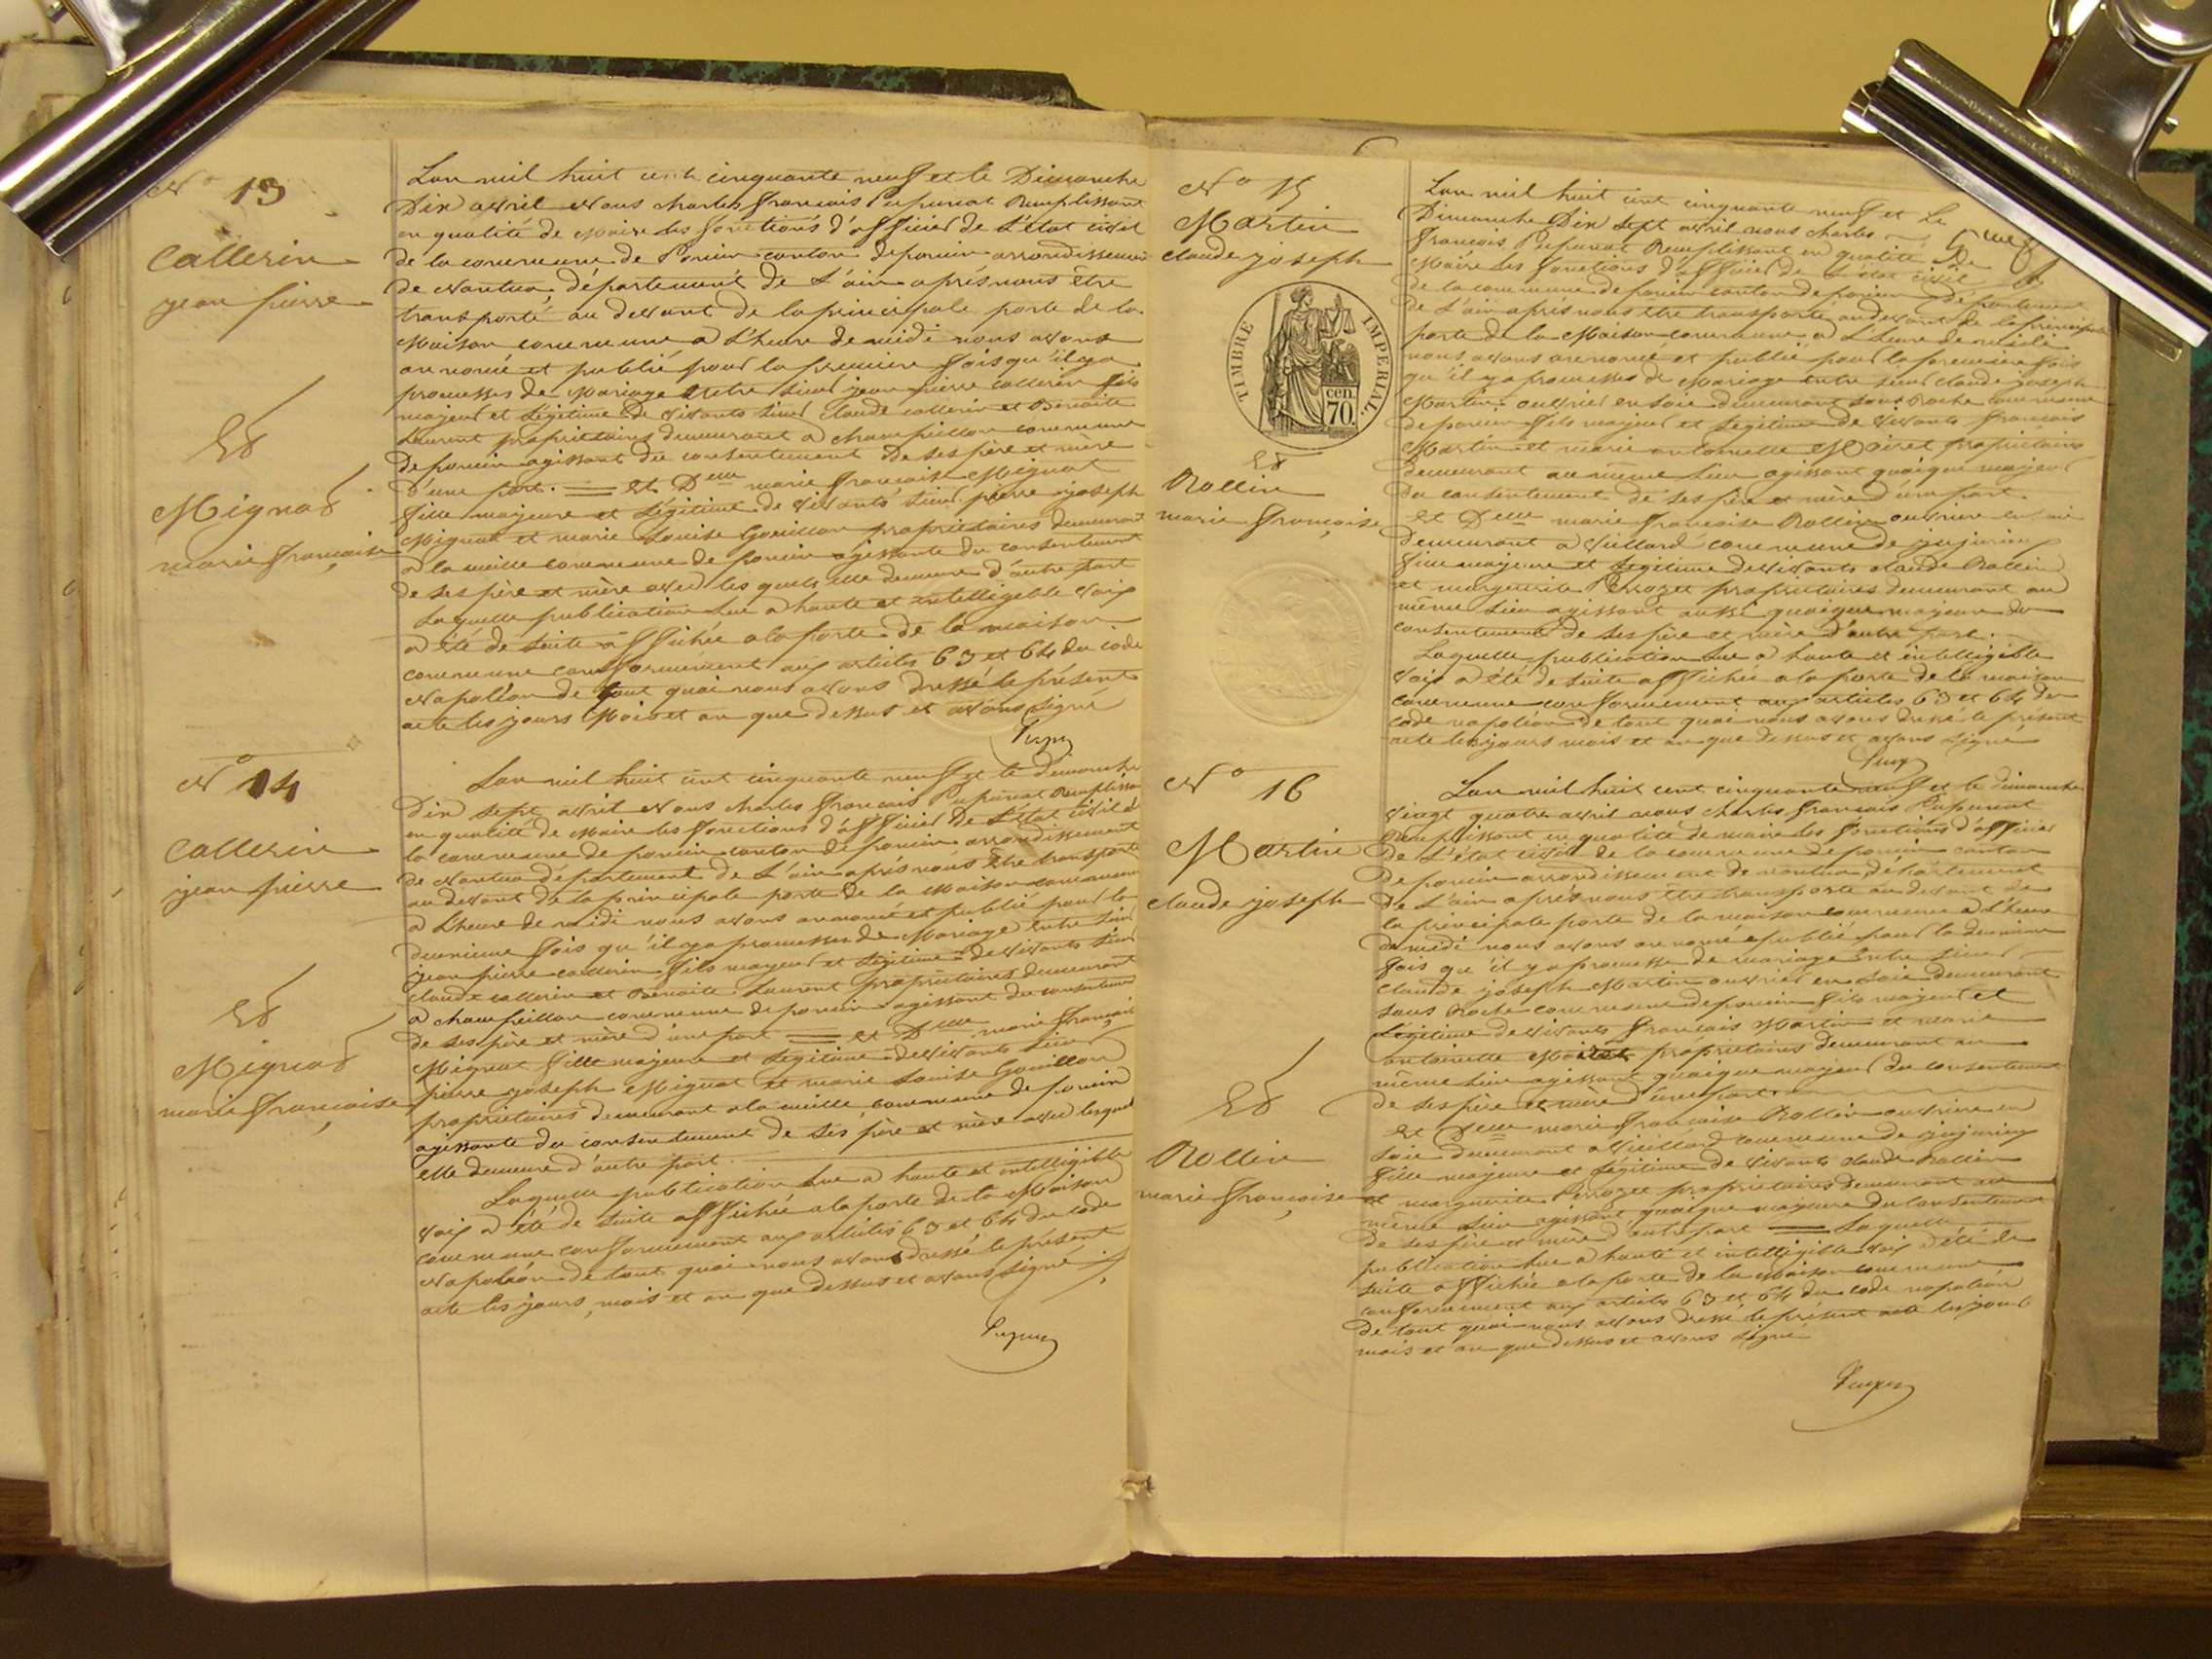 N° 13
Callerin
jean pierre
Et
Mignat
marie françoise
Lan mil huit cent cinquante neuf et le Dimanche
Dix avril Nous charles françois Pupunat Remplissant
en qualité de Maire les fonctions d'officier de L'état civil
de la commune de Poncin canton de poncin arrondissement
de Nantua, département de L'ain après nous être
transporté au devant de la principale porte de la
Maison commune a L'heure de midi nous avons
annoncé et publié pour la premiere fois qu'il y a
promesses de Mariage Entre sieur jean pierre callerin fils
majeur et Légitime de vivants sieur Claude callerin et Benoite
Laurent propriétaires demeurant a champeillon commune
de poncin agissant du consentement De ses père et mère
d'une part. — et Delle marie françoise Mignat
fille majeure et Légitime de vivants sieur pierre joseph
Mignat et marie Louise Gouillon propriétaires demeurant
a la cueille commune de poncin agissante du consentement
de ses père et mère avec les quels elle demeure d'autre part
Laquelle publication Lue a haute et intelligible voix
a été de suite affichée a la porte de la maison
commune conformément aux articles 63 et 64 du code
Napoléon de tout quoi nous avons dressé le présent
acte les jours Mois et an que dessus et avons signé
N° 14
Callerin
jean pierre
Et
Mignat
marie françoise
Lan mil huit cent cinquante neuf et le dimanche
Dix sept avril Nous charles françois Pupunat Remplissant
en qualité de Maire les fonctions d'officier de L'état civil de
la commune de poncin canton de poncin arrondissement
de Nantua département de L'ain après nous être transporté
au devant de la principale porte de la Maison commune
a L'heure de midi nous avons annoncé et publié pour la
deuxieme fois qu'il y a promesses de Mariage Entre sieur
jean pierre callerin fils majeur et Légitime de vivants sieur
claude callerin et Benoite Laurent propriétaires demeurant
a champeillon commune de poncin agissant du consentement
de ses père et mère d'une part — et Delle marie françoise
Mignat fille majeure et Légitime de vivants sieur
pierre joseph Mignat et marie Louise Gouillon
propriétaires demeurant a la cueille commune de poncin
agissante du consentement de ses père et mère avec lesquels
elle demeure d'autre part.
Laquelle publication Lue a haute et intelligible
voix a été de suite affichée a la porte de la Maison
commune conformément aux articles 63 et 64 du code
Napoléon de tout quoi nous avons dressé le présent
acte les jours, mois et an que dessus et avons signé
N° 15
Martin
claude joseph
TIMBRE IMPERIAL
cen.
70.
Et
Rollin
marie françoise
Lan mil huit cent cinquante neuf et Le
Dimanche Dix sept avril nous charles
françois Pupunat Remplissant en qualité de
Maire les fonctions d'officier de L'état civil
de la commune de poncin canton de poncin département
de L'ain après nous être transporté au devant de la principale
porte de la Maison commune a L'heure de midi
nous avons annoncé et publié pour la premiere fois
qu'il y a promesses de Mariage entre sieur claude joseph
Martin ouvrier en soie demeurant sous Roche commune
de poncin fils majeur et Légitime de vivants françois
Martin et marie antoinette Moiret propriétaires
demeurant au même Lieu agissant quoique majeur
du consentement de ses père et mère d'une part.
et Delle marie françoise Rollin ouvriere en soie
demeurant a commune de jujurieux
fille majeure et Légitime de vivants claude Rollin
et marguerite Perrozet propriétaires demeurant au
même Lieu agissant aussi quoique majeure du
consentement de ses père et mère d'autre part.
Laquelle publication Lue a haute et intelligible
voix a été de suite affichée a la porte de la maison
commune conformément aux articles 63 et 64 du
code napoléon de tout quoi nous avons dressé le présent
acte les jours mois et an que dessus et avons signé
N° 16
Martin
claude joseph
Et
Rollin
marie françoise
Lan mil huit cent cinquante neuf et le dimanche
vingt quatre avril nous charles françois Pupunat
Remplissant en qualité de maire les fonctions d'officier
de L'état civil de la commune de poncin canton
de poncin arrondissement de nantua département
de L'ain après nous être transporté au devant de
la principale porte de la maison commune a L'heure
de midi nous avons annoncé et publié pour la deuxieme
fois qu'il y a promesse de mariage Entre sieur
claude joseph Martin ouvrier en soie demeurant
sous Roche commune de poncin fils majeur et
Légitime de vivants françois Martin et marie
antoinette Moiret propriétaires demeurant au
même Lieu agissant quoique majeur du consentement
de ses père et mère d'une part.
et Delle marie françoise Rollin ouvriere en
soie demeurant a commune de jujurieux
fille majeure et Légitime de vivants claude Rollin
et marguerite Perrozet propriétaires demeurant au
même Lieu agissant quoique majeure du consentement
de ses père et mère d'autre part — Laquelle
publication Lue a haute et intelligible voix a été de
suite affichée a la porte de la Maison commune
conformément aux articles 63 et 64 du code napoléon
de tout quoi nous avons dressé le présent acte les jours
mois et an que dessus et avons signé